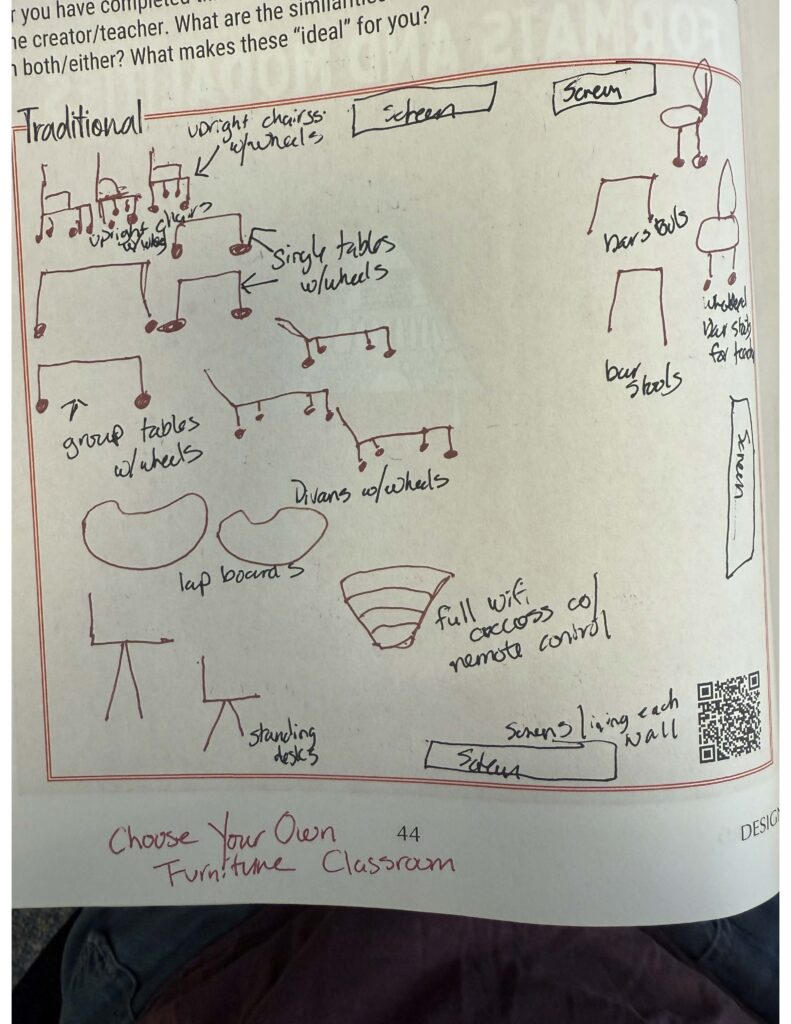 you have completed
he creator/teacher. What are the similarities
both/either? What makes these “ideal” for you?
Traditional
upright chairss
w/wheels
Screen
Screen
upright chairs
w/wheels
Single tables
w/wheels
bar stools
wheeled
bar stools
for teach
bar
stools
group tables
w/wheels
Divans w/wheels
Screen
lap boards
full wifi
access w/
remote control
standing
desks
Screens lining each
wall
Screen
Choose Your Own
Furniture Classroom
44
DESIGN